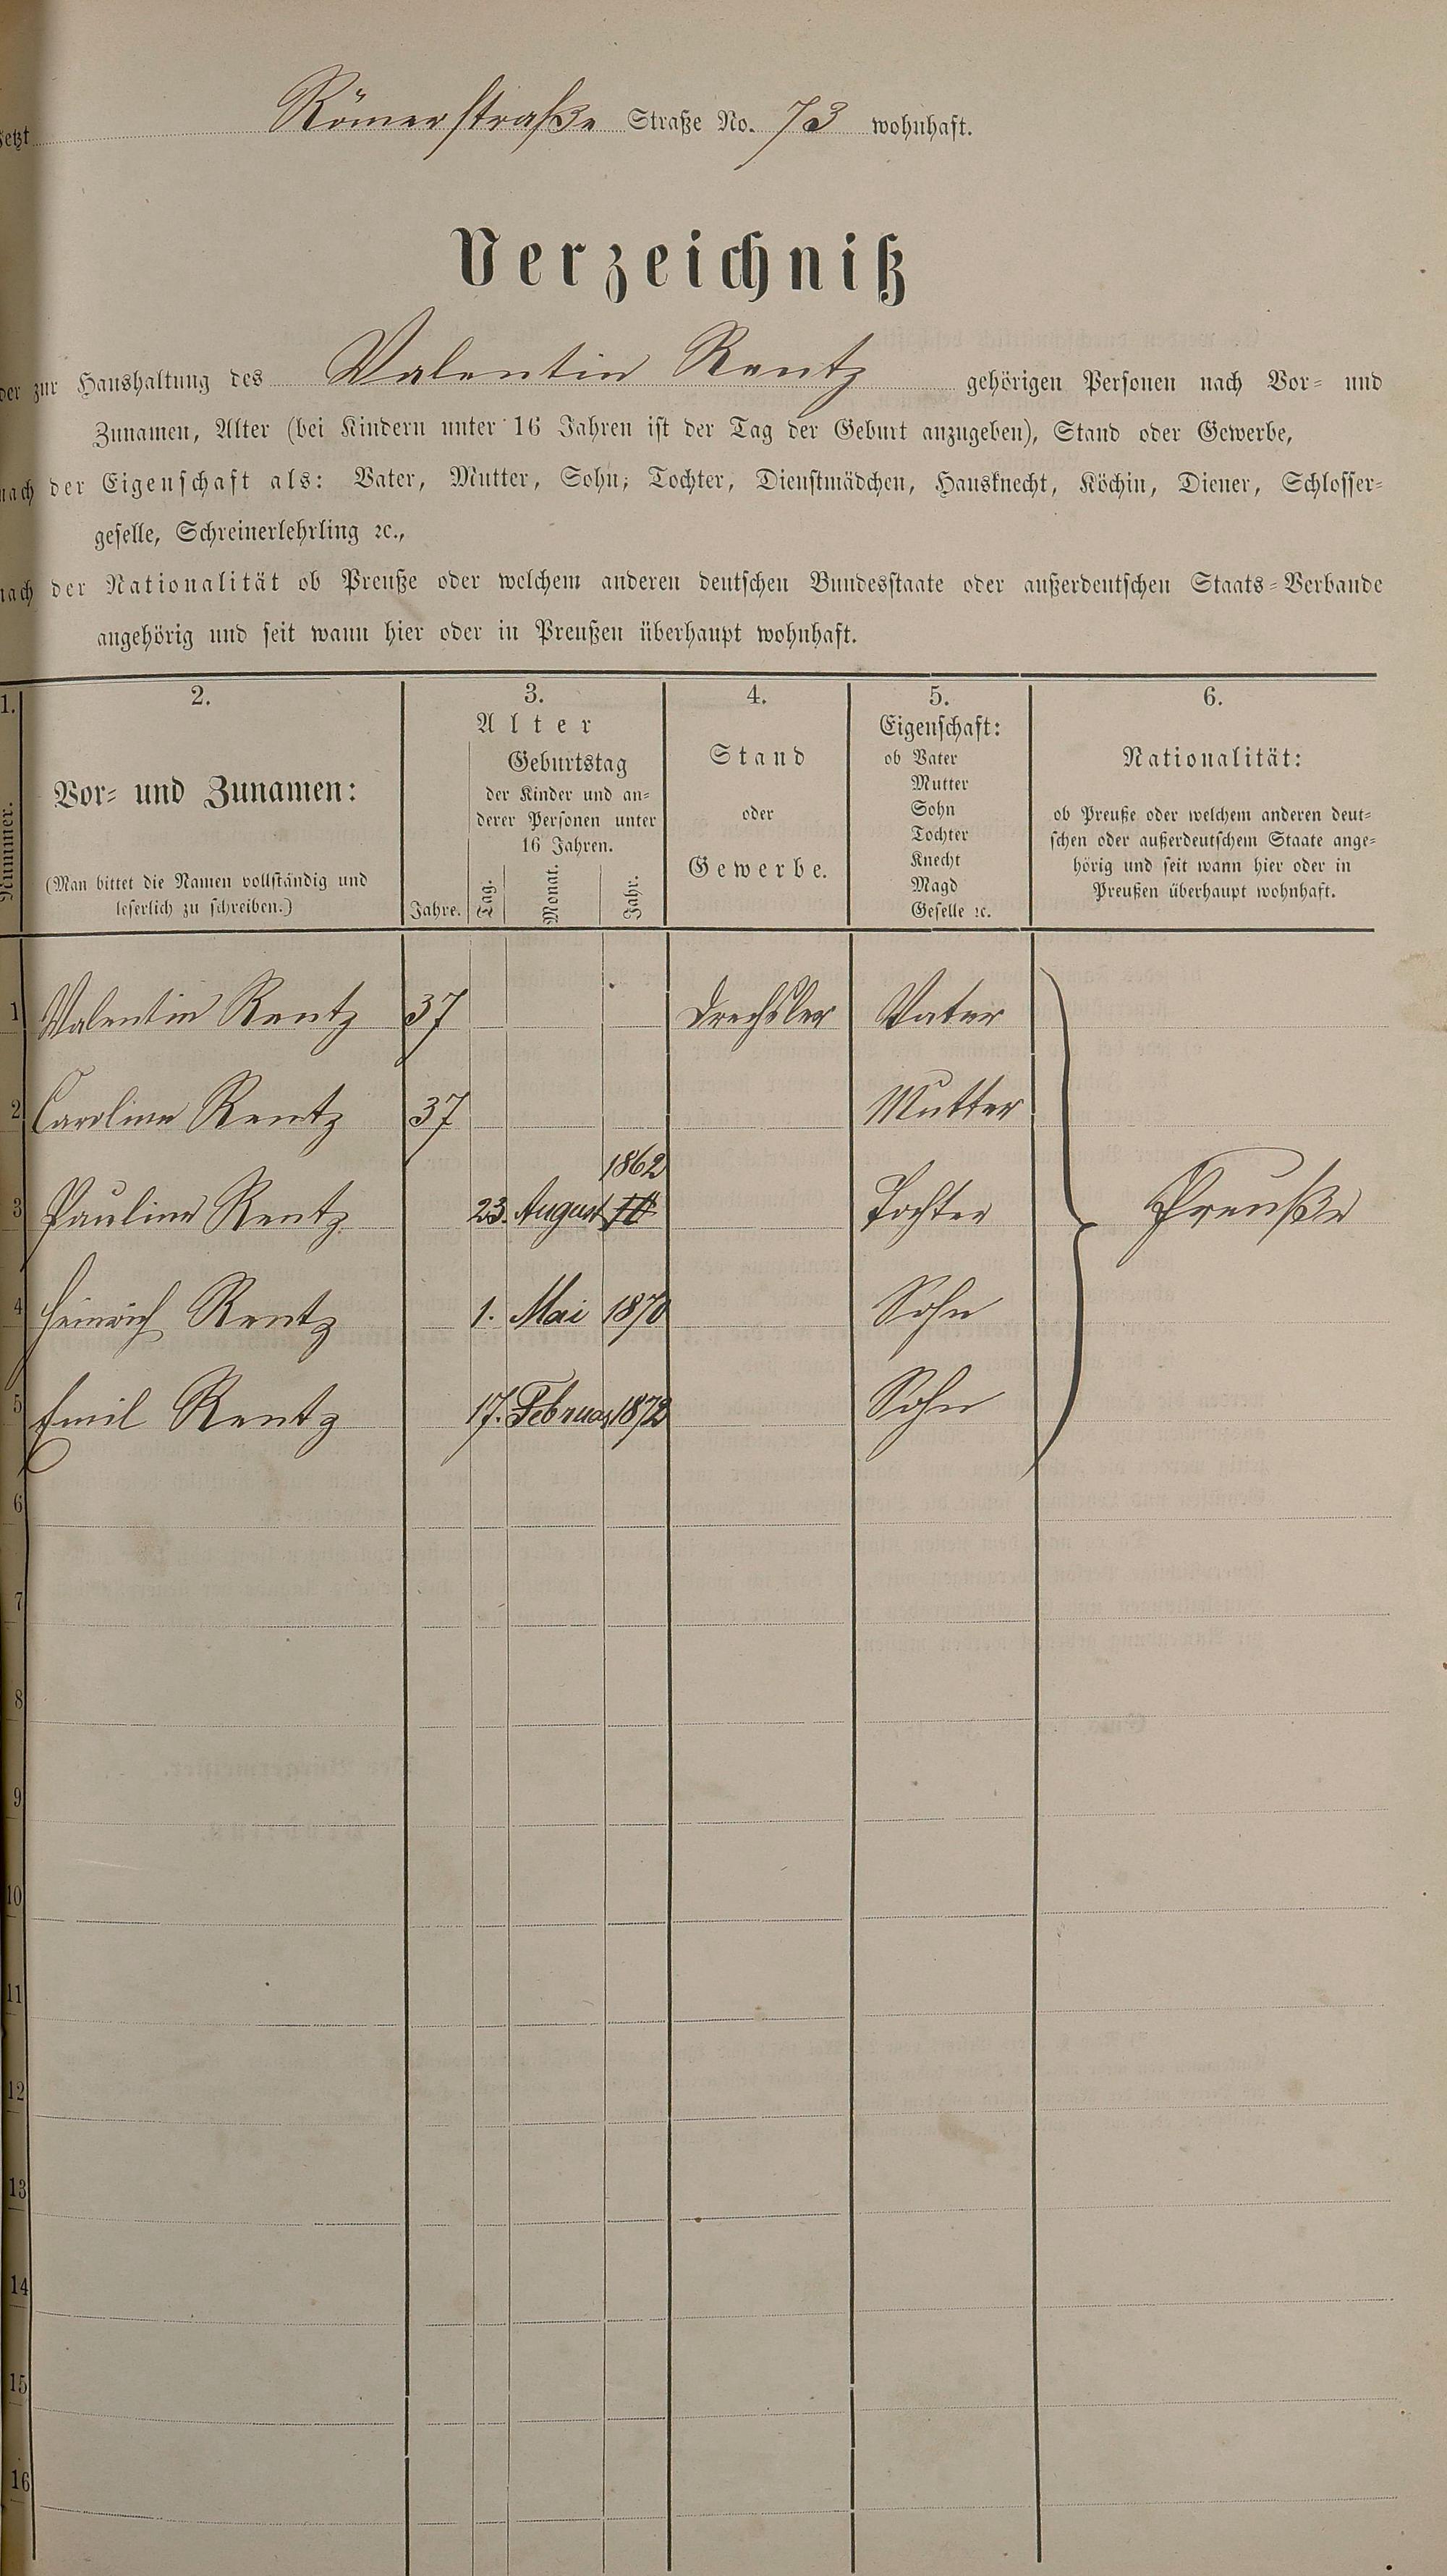 jetzt Römerstraße Straße No. 73 wohnhaft.
Verzeichniß
der zur Haushaltung des Valentin Rentz gehörigen Personen nach Vor- und
Zunamen, Alter (bei Kindern unter 16 Jahren ist der Tag der Geburt anzugeben), Stand oder Gewerbe,
nach der Eigenschaft als: Vater, Mutter, Sohn, Tochter, Dienstmädchen, Hausknecht, Köchin, Diener, Schlosser-
geselle, Schreinerlehrling ꝛc.,
nach der Nationalität ob Preuße oder welchem anderen deutschen Bundesstaate oder außerdeutschen Staats-Verbande
angehörig und seit wann hier oder in Preußen überhaupt wohnhaft.
1.
Nummer.
2.
Vor- und Zunamen:
(Man bittet die Namen vollständig und
leserlich zu schreiben.)
3.
Alter
Geburtstag
der Kinder und an-
derer Personen unter
16 Jahren.
Jahre. Tag. Monat. Jahr.
4.
Stand
oder
Gewerbe.
5.
Eigenschaft:
ob Vater
Mutter
Sohn
Tochter
Knecht
Magd
Geselle ꝛc.
6.
Nationalität:
ob Preuße oder welchem anderen deut-
schen oder außerdeutschem Staate ange-
hörig und seit wann hier oder in
Preußen überhaupt wohnhaft.
1 Valentin Rentz 37 Drechsler Vater
2 Caroline Rentz 37 Mutter
1862
3 Pauline Rentz 23. August Tochter Preuße
4 Heinrich Rentz 1. Mai 1870 Sohn
5 Emil Rentz 17. Februar 1872 Sohn
6
7
8
9
10
11
12
13
14
15
16